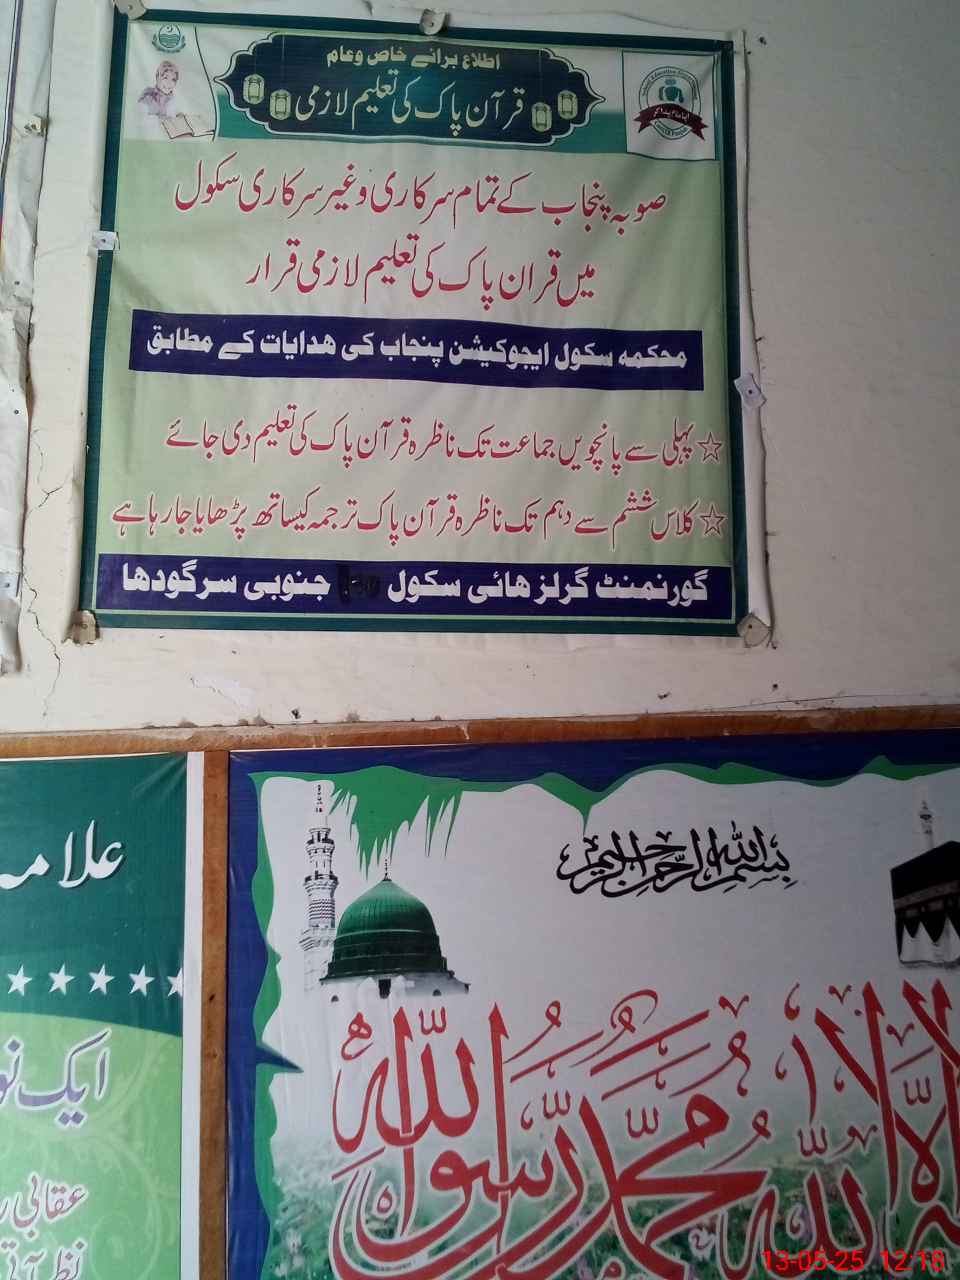 اطلاع برائے خاص وعام
قرآن پاک کی تعلیم لازمی
صوبہ پنجاب کے تمام سرکاری وغیر سرکاری سکول
میں قران پاک کی تعلیم لازمی قرار
محکمہ سکول ایجوکیشن پنجاب کی ھدایات کے مطابق
☆ پہلی سے پانچویں جماعت تک ناظرہ قرآن پاک کی تعلیم دی جائے
☆ کلاس ششم سے دہم تک ناظرہ قرآن پاک ترجمہ کیساتھ پڑھایا جارہا ہے
گورنمنٹ گرلز ھائی سکول جنوبی سرگودھا
بسم الله الرحمن الرحيم
لا إله إلا الله محمد رسول الله
علامہ
ایک نو
عقابی
نظر آتی
13-05-25 12:18